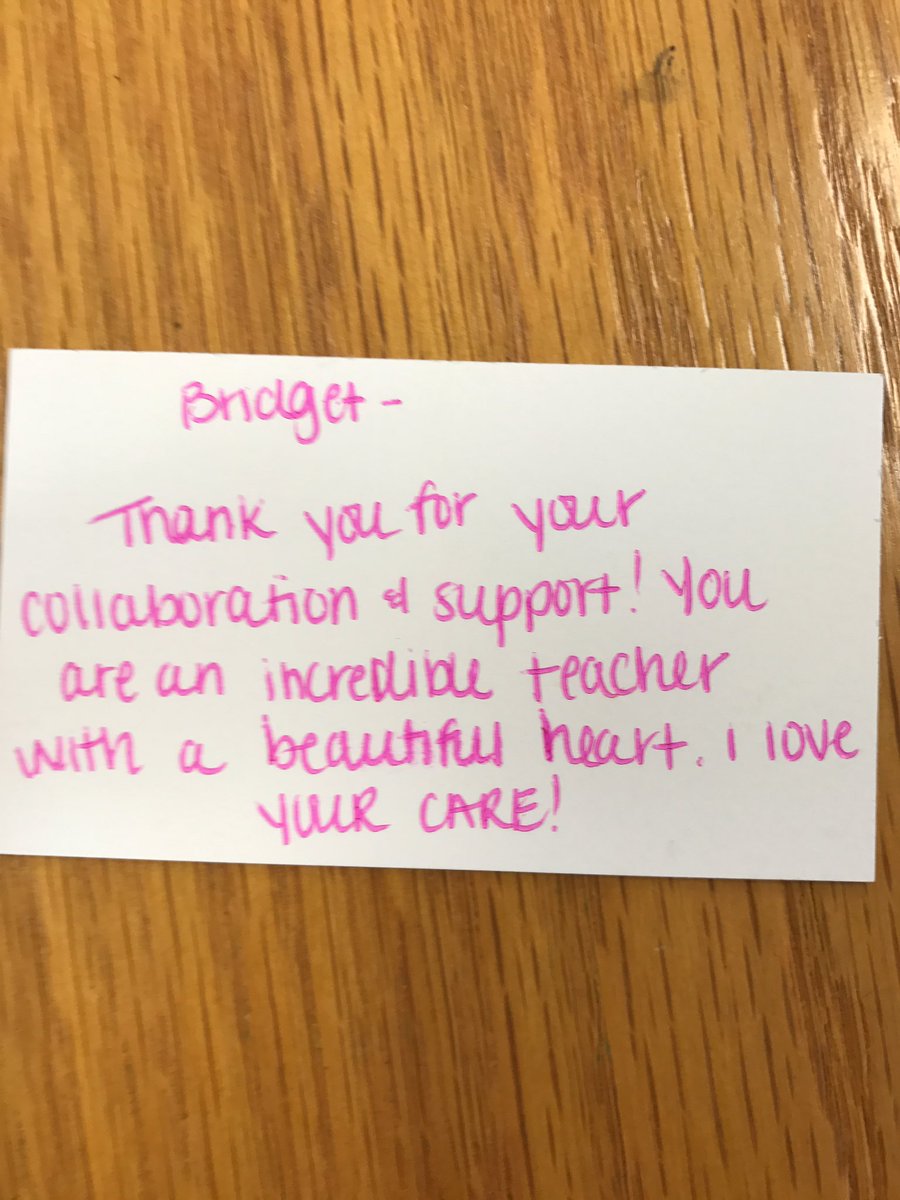 Bridget -
Thank you for your
collaboration & support! You
are an incredible teacher
with a beautiful heart. I love
YOUR CARE!